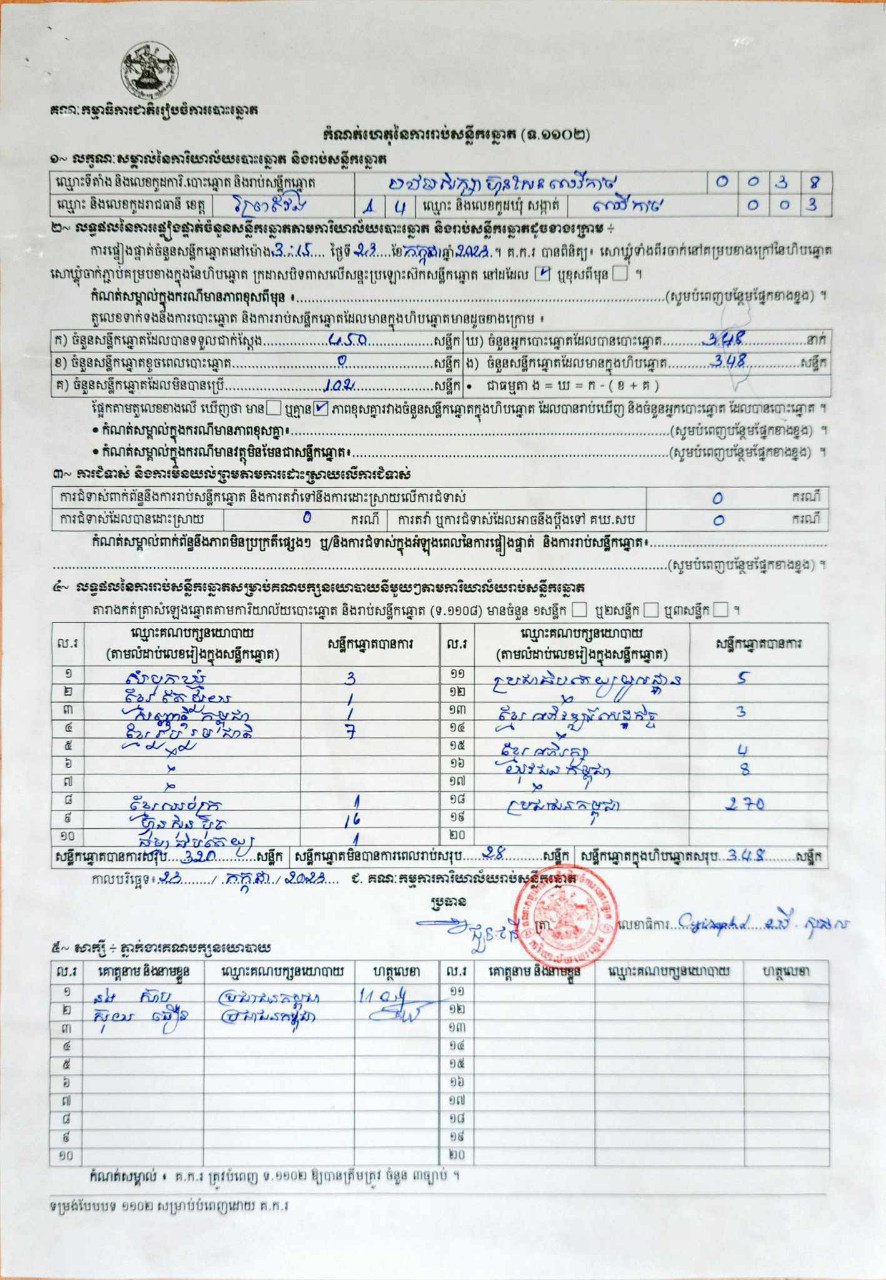 គណៈកម្មាធិការជាតិរៀបចំការបោះឆ្នោត
កំណត់ហេតុនៃការរាប់សន្លឹកឆ្នោត (ទ.១១០២)
១~ លក្ខណៈសម្គាល់នៃការិយាល័យបោះឆ្នោត និងរាប់សន្លឹកឆ្នោត
ឈ្មោះទីតាំង និងលេខកូដការិ.បោះឆ្នោត និងរាប់សន្លឹកឆ្នោត 0 0 3 8
ឈ្មោះ និងលេខកូដរាជធានី ខេត្ត ព្រៃវែង 1 4 ឈ្មោះ និងលេខកូដឃុំ សង្កាត់ 0 0 3
២~ លទ្ធផលនៃការផ្ទៀងផ្ទាត់ចំនួនសន្លឹកឆ្នោតតាមការិយាល័យបោះឆ្នោត និងរាប់សន្លឹកឆ្នោតដូចខាងក្រោម ÷
ការផ្ទៀងផ្ទាត់ចំនួនសន្លឹកឆ្នោតនៅម៉ោង 3:15 ថ្ងៃទី 23 ខែ កក្កដា ឆ្នាំ 2023 ។ គ.ក.រ បានពិនិត្យ៖ សោឃ្លុំទាំងពីរចាក់នៅគម្របខាងក្រៅនៃហិបឆ្នោត
សោឃ្លុំចាក់ភ្ជាប់គម្របខាងក្នុងនៃហិបឆ្នោត ក្រដាសបិទពាសលើសន្ទះប្រឡោះស៊កសន្លឹកឆ្នោត នៅដដែល ☑ ឬខុសពីមុន ☐ ។
កំណត់សម្គាល់ក្នុងករណីមានភាពខុសពីមុន ៖ (សូមបំពេញបន្ថែមផ្នែកខាងខ្នង) ។
តួលេខទាក់ទងនឹងការបោះឆ្នោត និងការរាប់សន្លឹកឆ្នោតដែលមានក្នុងហិបឆ្នោតមានដូចខាងក្រោម ៖
ក) ចំនួនសន្លឹកឆ្នោតដែលបានទទួលជាក់ស្តែង 450 សន្លឹក ឃ) ចំនួនអ្នកបោះឆ្នោតដែលបានបោះឆ្នោត 348 នាក់
ខ) ចំនួនសន្លឹកឆ្នោតខូចពេលបោះឆ្នោត 0 សន្លឹក ង) ចំនួនសន្លឹកឆ្នោតដែលមានក្នុងហិបឆ្នោត 348 សន្លឹក
គ) ចំនួនសន្លឹកឆ្នោតដែលមិនបានប្រើ 102 សន្លឹក • ជាធម្មតា ង = ឃ = ក - ( ខ + គ )
ផ្អែកតាមតួលេខខាងលើ ឃើញថា មាន ☐ ឬគ្មាន ☑ ភាពខុសគ្នារវាងចំនួនសន្លឹកឆ្នោតក្នុងហិបឆ្នោត ដែលបានរាប់ឃើញ និងចំនួនអ្នកបោះឆ្នោត ដែលបានបោះឆ្នោត ។
• កំណត់សម្គាល់ក្នុងករណីមានភាពខុសគ្នា៖ (សូមបំពេញបន្ថែមផ្នែកខាងខ្នង) ។
• កំណត់សម្គាល់ក្នុងករណីមានវត្ថុមិនមែនជាសន្លឹកឆ្នោត៖ (សូមបំពេញបន្ថែមផ្នែកខាងខ្នង) ។
៣~ ការជំទាស់ និងការមិនយល់ព្រមតាមការដោះស្រាយលើការជំទាស់
ការជំទាស់ពាក់ព័ន្ធនឹងការរាប់សន្លឹកឆ្នោត និងការតវ៉ាទៅនឹងការដោះស្រាយលើការជំទាស់ 0 ករណី
ការជំទាស់ដែលបានដោះស្រាយ 0 ករណី ការតវ៉ា ឬការជំទាស់ដែលអាចនឹងប្តឹងទៅ គឃ.សប 0 ករណី
កំណត់សម្គាល់ពាក់ព័ន្ធនឹងភាពមិនប្រក្រតីផ្សេងៗ ឬ/និងការជំទាស់ក្នុងអំឡុងពេលនៃការផ្ទៀងផ្ទាត់ និងការរាប់សន្លឹកឆ្នោត៖
(សូមបំពេញបន្ថែមផ្នែកខាងខ្នង) ។
៤~ លទ្ធផលនៃការរាប់សន្លឹកឆ្នោតសម្រាប់គណបក្សនយោបាយនីមួយៗតាមការិយាល័យរាប់សន្លឹកឆ្នោត
តារាងកត់ត្រាសំឡេងឆ្នោតតាមការិយាល័យបោះឆ្នោត និងរាប់សន្លឹកឆ្នោត (ទ.១១០៨) មានចំនួន ១សន្លឹក ☐ ឬ២សន្លឹក ☐ ឬ៣សន្លឹក ☐ ។
ល.រ ឈ្មោះគណបក្សនយោបាយ (តាមលំដាប់លេខរៀងក្នុងសន្លឹកឆ្នោត) សន្លឹកឆ្នោតបានការ ល.រ ឈ្មោះគណបក្សនយោបាយ (តាមលំដាប់លេខរៀងក្នុងសន្លឹកឆ្នោត) សន្លឹកឆ្នោតបានការ
១ 3 ១១ ប្រជាធិបតេយ្យមូលដ្ឋាន 5
២ 1 ១២
៣ កម្ពុជា 1 ១៣ ខ្មែរអភិវឌ្ឍន៍សេដ្ឋកិច្ច 3
៤ ខ្មែររួបរួមជាតិ 7 ១៤
៥ ១៥ ខ្មែរអភិរក្ស 4
៦ ១៦ យុវជនកម្ពុជា 8
៧ ១៧
៨ 1 ១៨ ប្រជាជនកម្ពុជា 270
៩ ហ៊្វុនស៊ិនប៉ិច 16 ១៩
១០ 1 ២០
សន្លឹកឆ្នោតបានការសរុប 320 សន្លឹក សន្លឹកឆ្នោតមិនបានការពេលរាប់សរុប 28 សន្លឹក សន្លឹកឆ្នោតក្នុងហិបឆ្នោតសរុប 348 សន្លឹក
កាលបរិច្ឆេទ៖ 23 / កក្កដា / 2023 ជ. គណៈកម្មការការិយាល័យរាប់សន្លឹកឆ្នោត
ប្រធាន
ត្រា លេខាធិការ
៥~ សាក្សី ÷ ភ្នាក់ងារគណបក្សនយោបាយ
ល.រ គោត្តនាម និងនាមខ្លួន ឈ្មោះគណបក្សនយោបាយ ហត្ថលេខា ល.រ គោត្តនាម និងនាមខ្លួន ឈ្មោះគណបក្សនយោបាយ ហត្ថលេខា
១ ប្រជាជនកម្ពុជា ១១
២ ប្រជាជនកម្ពុជា ១២
៣ ១៣
៤ ១៤
៥ ១៥
៦ ១៦
៧ ១៧
៨ ១៨
៩ ១៩
១០ ២០
កំណត់សម្គាល់ ៖ គ.ក.រ ត្រូវបំពេញ ទ.១១០២ ឱ្យបានត្រឹមត្រូវ ចំនួន ៣ច្បាប់ ។
ទម្រង់បែបបទ ១១០២ សម្រាប់បំពេញដោយ គ.ក.រ